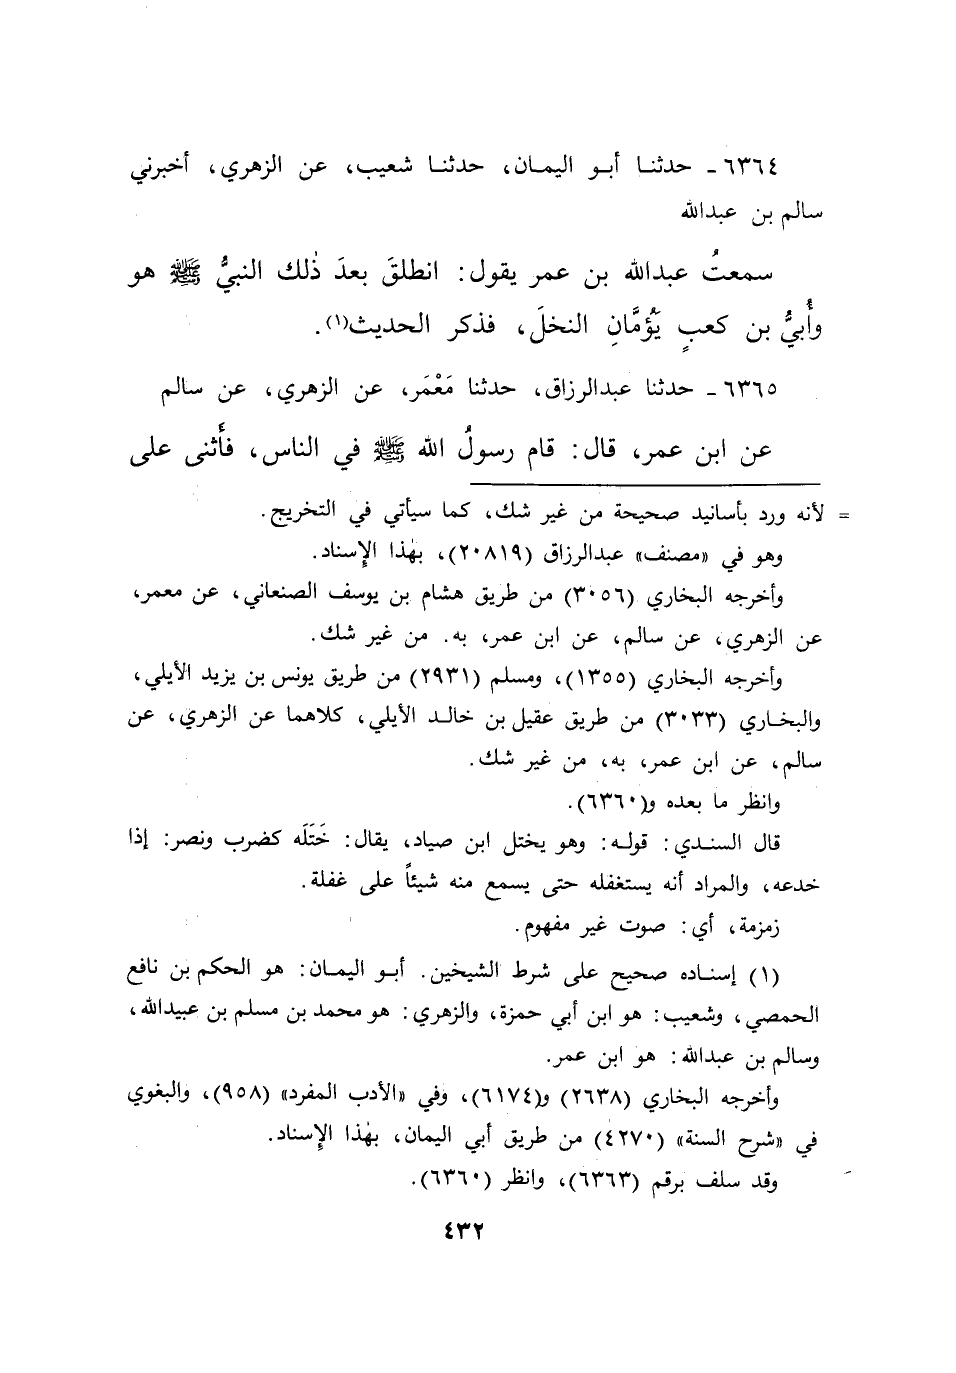 ٦٣٦٤ ـ حدثنـا أبـو اليمـان، حدثنـا شعيب، عن الزهري، أخبرني
سالم بن عبدالله
سمعتُ عبدالله بن عمر يقول: انطلقَ بعدَ ذٰلك النبيُّ ﷺ هو
وأُبيُّ بن كعبٍ يَؤُمَّانِ النخلَ، فذكر الحديث(١).
٦٣٦٥ ـ حدثنا عبدالرزاق، حدثنا مَعْمَر، عن الزهري، عن سالم
عن ابن عمر، قال: قام رسولُ الله ﷺ في الناس، فأَثنى على
= لأنه ورد بأسانيد صحيحة من غير شك، كما سيأتي في التخريج.
وهو في «مصنف» عبدالرزاق (٢٠٨١٩)، بهٰذا الإسناد.
وأخرجه البخاري (٣٠٥٦) من طريق هشام بن يوسف الصنعاني، عن معمر،
عن الزهري، عن سالم، عن ابن عمر، به. من غير شك.
وأخرجه البخاري (١٣٥٥)، ومسلم (٢٩٣١) من طريق يونس بن يزيد الأيلي،
والبخـاري (٣٠٣٣) من طريق عقيل بن خالـد الأيلي، كلاهما عن الزهري، عن
سالم، عن ابن عمر، به، من غير شك.
وانظر ما بعده و(٦٣٦٠).
قال السنـدي: قولـه: وهو يختل ابن صياد، يقال: خَتَلَه كضرب ونصر: إذا
خدعه، والمراد أنه يستغفله حتى يسمع منه شيئاً على غفلة.
زمزمة، أي: صوت غير مفهوم.
(١) إسنـاده صحيح على شرط الشيخين. أبـو اليمـان: هو الحكم بن نافع
الحمصي، وشعيب: هو ابن أبي حمزة، والزهري: هو محمد بن مسلم بن عبيدالله،
وسالم بن عبدالله: هو ابن عمر.
وأخرجه البخاري (٢٦٣٨) و(٦١٧٤)، وفي «الأدب المفرد» (٩٥٨)، والبغوي
في «شرح السنة» (٤٢٧٠) من طريق أبي اليمان، بهٰذا الإسناد.
وقد سلف برقم (٦٣٦٣)، وانظر (٦٣٦٠).
٤٣٢